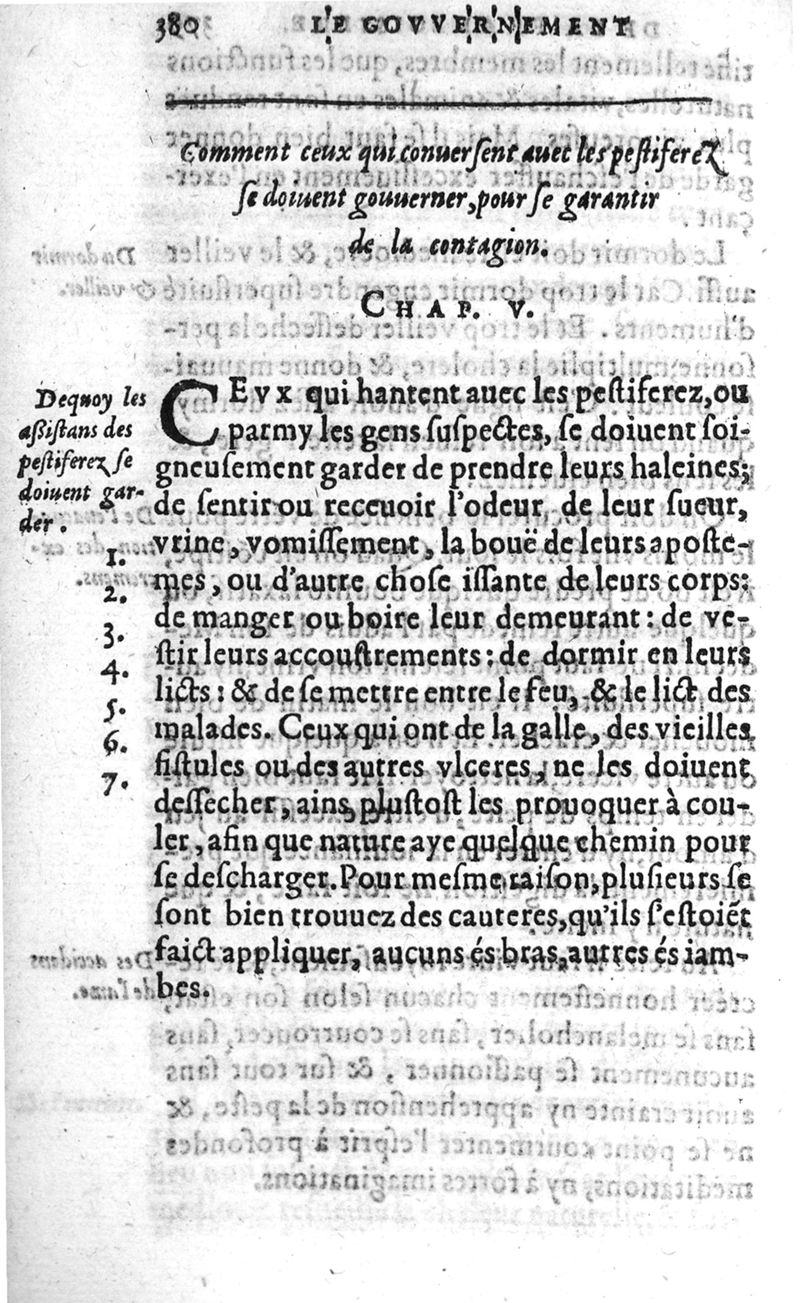 380 LE GOVVERNEMENT
Comment ceux qui conuerſent auec les peſtiferez
ſe doiuent gouuerner, pour ſe garantir
de la contagion.
CHAP. V.
Dequoy les
aßiſtans des
peſtiferez ſe
doiuent gar-
der.
1.
2.
3.
4.
5.
6.
7.
CEVX qui hantent auec les peſtiferez, ou
parmy les gens ſuſpectes, ſe doiuent ſoi-
gneuſement garder de prendre leurs haleines;
de ſentir ou receuoir l'odeur de leur ſueur,
vrine, vomiſſement, la bouë de leurs apoſte-
mes, ou d'autre choſe iſſante de leurs corps:
de manger ou boire leur demeurant: de ve-
ſtir leurs accouſtrements: de dormir en leurs
licts: & de ſe mettre entre le feu, & le lict des
malades. Ceux qui ont de la galle, des vieilles
fiſtules ou des autres vlceres, ne les doiuent
deſſecher, ains pluſtoſt les prouoquer à cou-
ler, afin que nature aye quelque chemin pour
ſe deſcharger. Pour meſme raiſon, pluſieurs ſe
ſont bien trouuez des cauteres, qu'ils s'eſtoiẽt
faict appliquer, aucuns és bras, autres és iam-
bes.